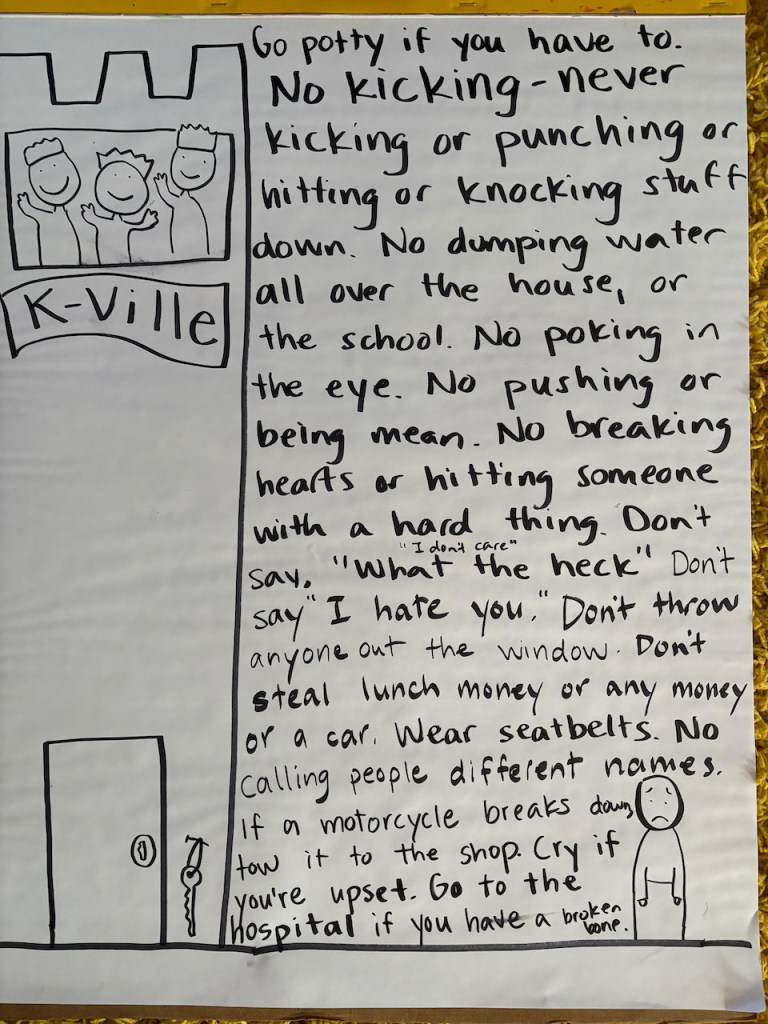 Go potty if you have to.
No kicking - never
kicking or punching or
hitting or knocking stuff
down. No dumping water
all over the house, or
the school. No poking in
the eye. No pushing or
being mean. No breaking
hearts or hitting someone
with a hard thing. Don't
"I don't care"
say, "What the heck" Don't
say "I hate you." Don't throw
anyone out the window. Don't
steal lunch money or any money
or a car. Wear seatbelts. No
calling people different names.
If a motorcycle breaks down,
tow it to the shop. Cry if
you're upset. Go to the
hospital if you have a broken
bone.
K-Ville